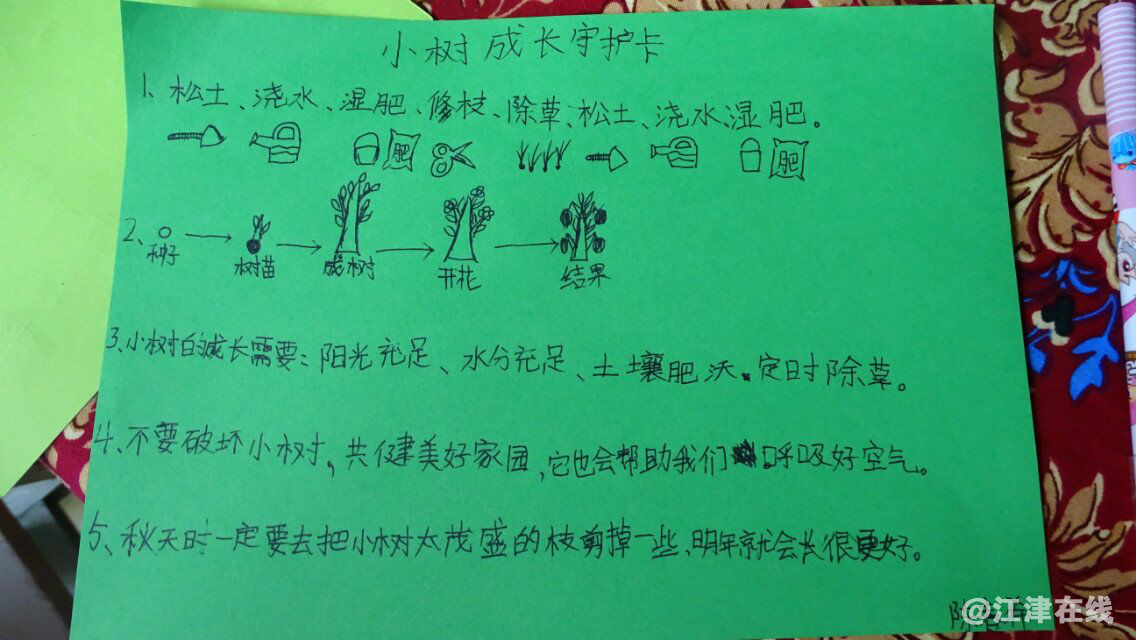 小树成长守护卡
1、松土、浇水、湿肥、修枝、除草、松土、浇水湿肥。
肥 肥
2、种子 树苗 成树 开花 结果
3、小树的成长需要：阳光充足、水分充足、土壤肥沃。定时除草。
4、不要破坏小树，共健美好家园，它也会帮助我们呼吸好空气。
5、秋天时一定要去把小树太茂盛的枝剪掉一些、明年就会长很更好。
陈
@江津在线